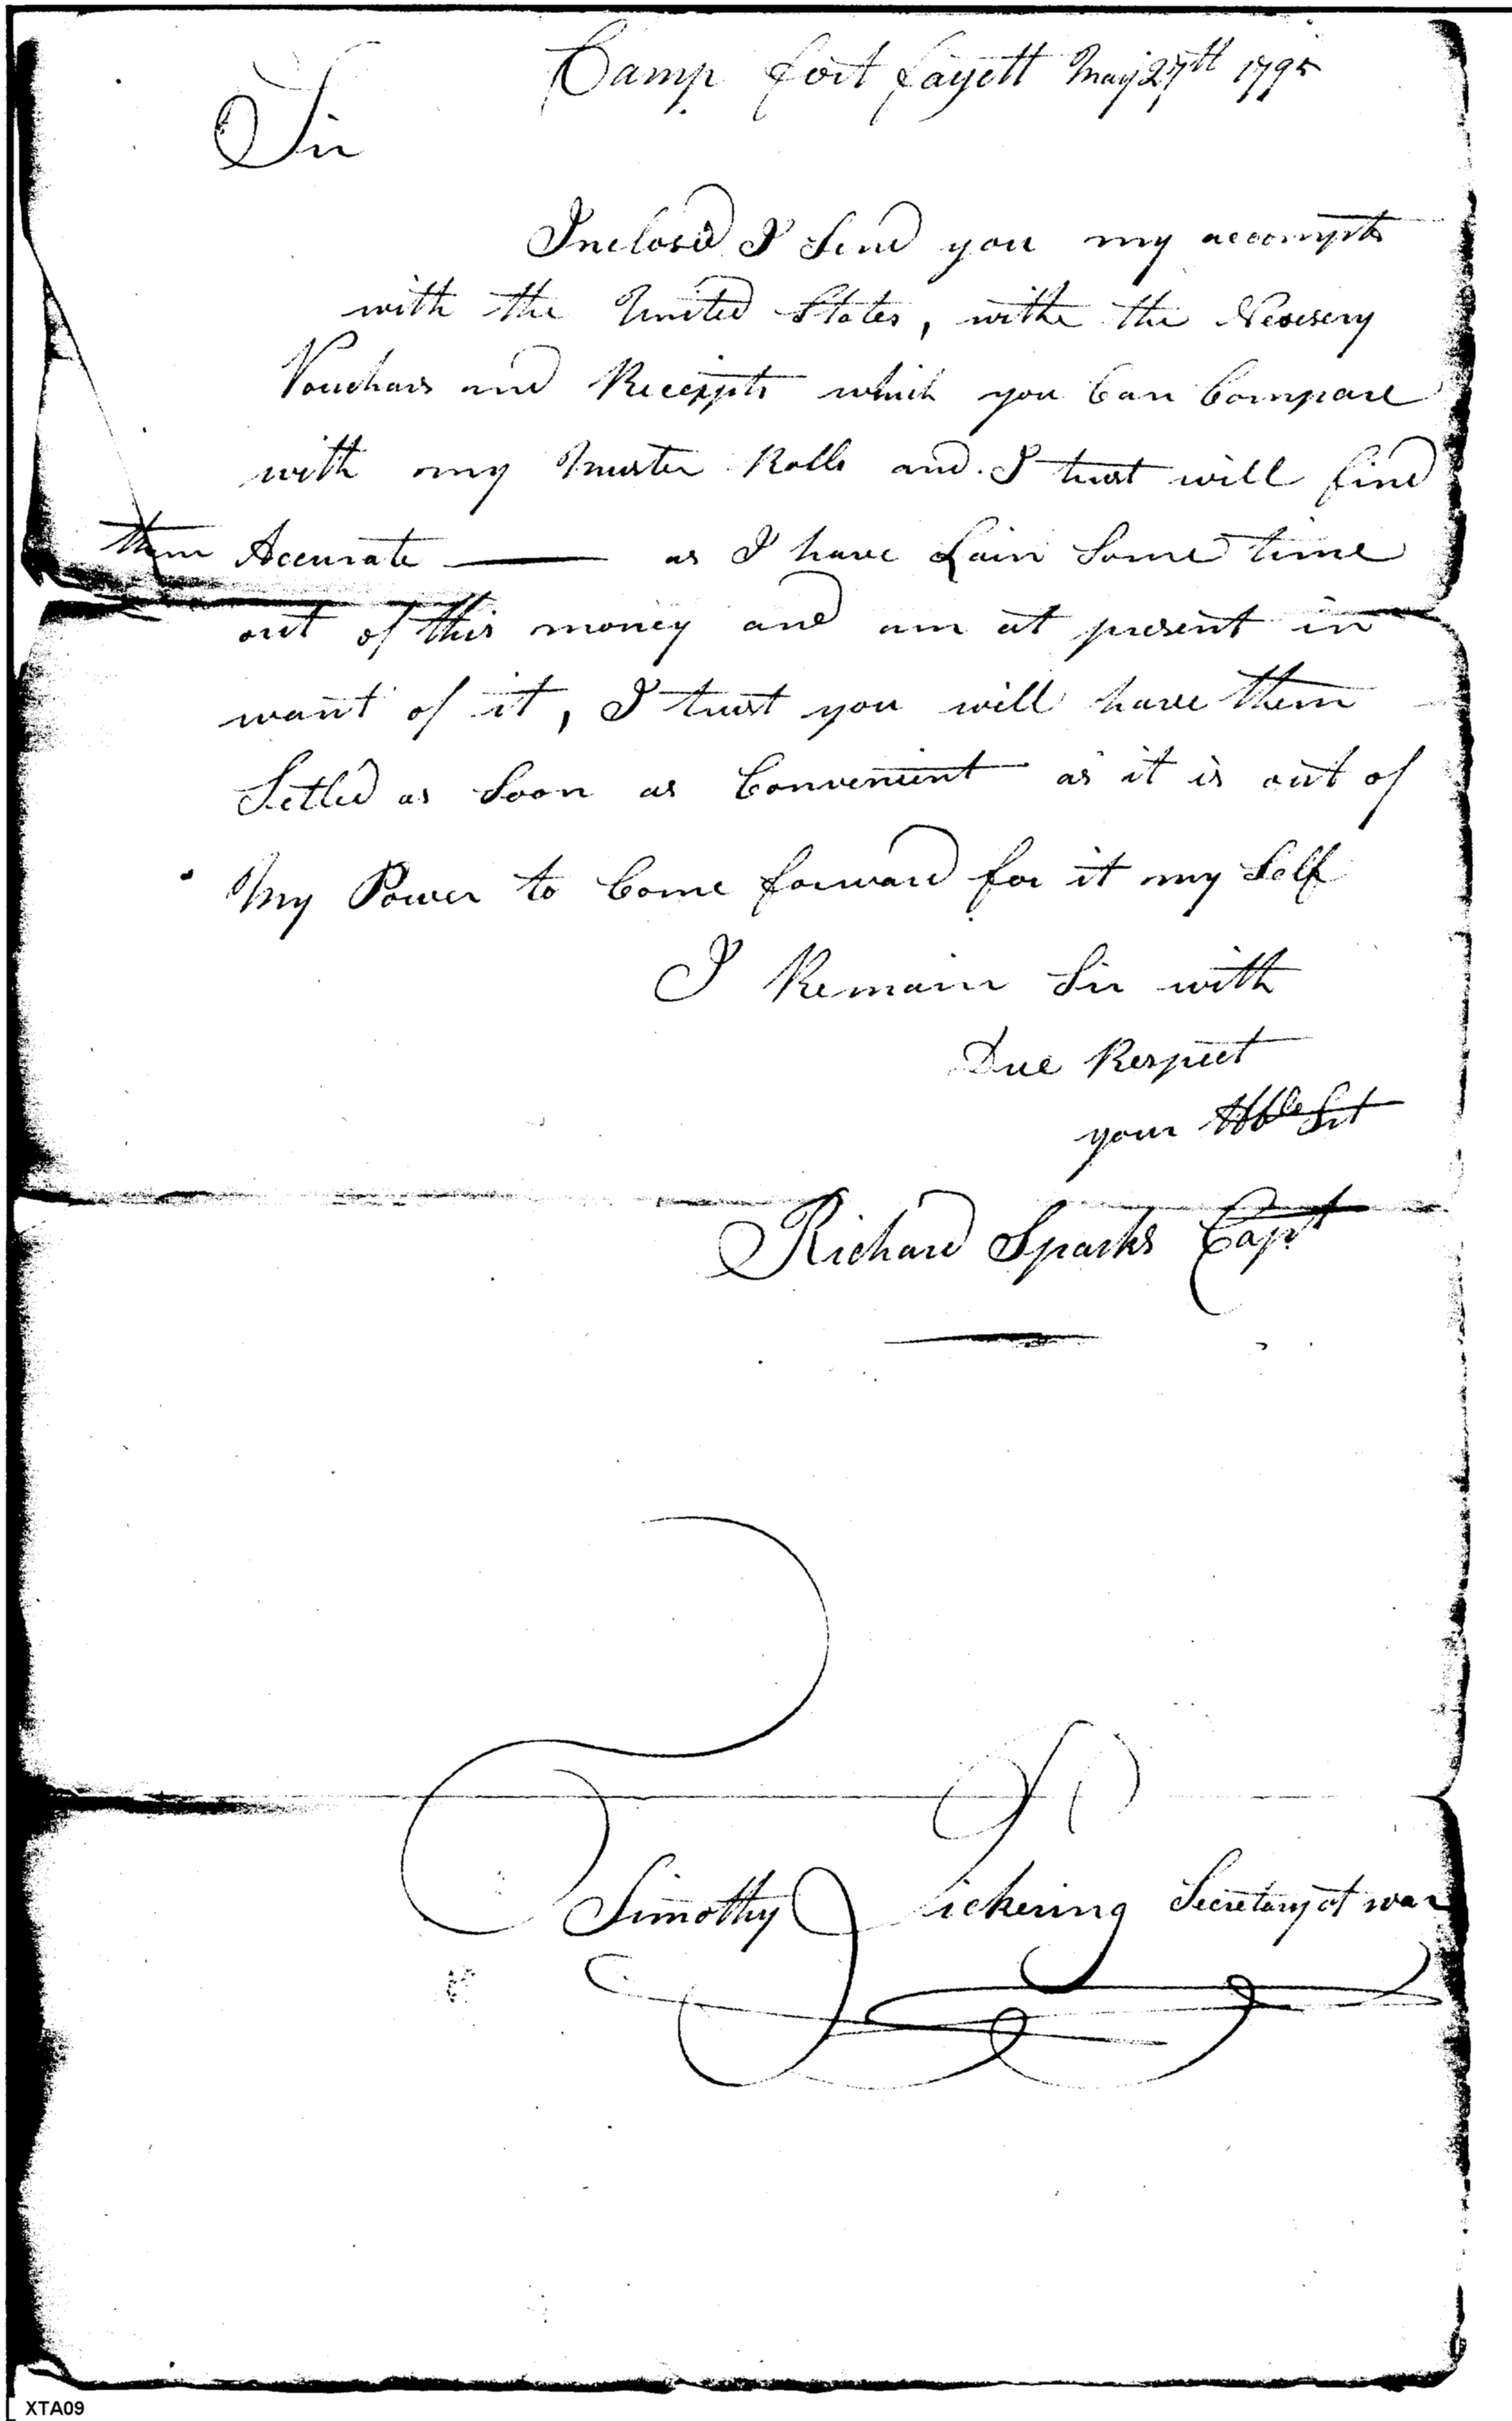 Camp fort fayett May 27th 1795
Sir
Inclosed I Send you my accompts
with the United States, withe the Nessesery
Vouchars and Receippts which you Can Compare
with my Muster Rolls and I trust will find
them Accurate — as I have Lain Some time
out of this money and am at present in
want of it, I trust you will have them
Setled as Soon as Convenient as it is out of
My Power to Come forward for it my Self
I Remain Sir with
Due Respect
your Hble Srt
Richard Sparks Capt
Timothy Pickering Secretary of war
XTA09